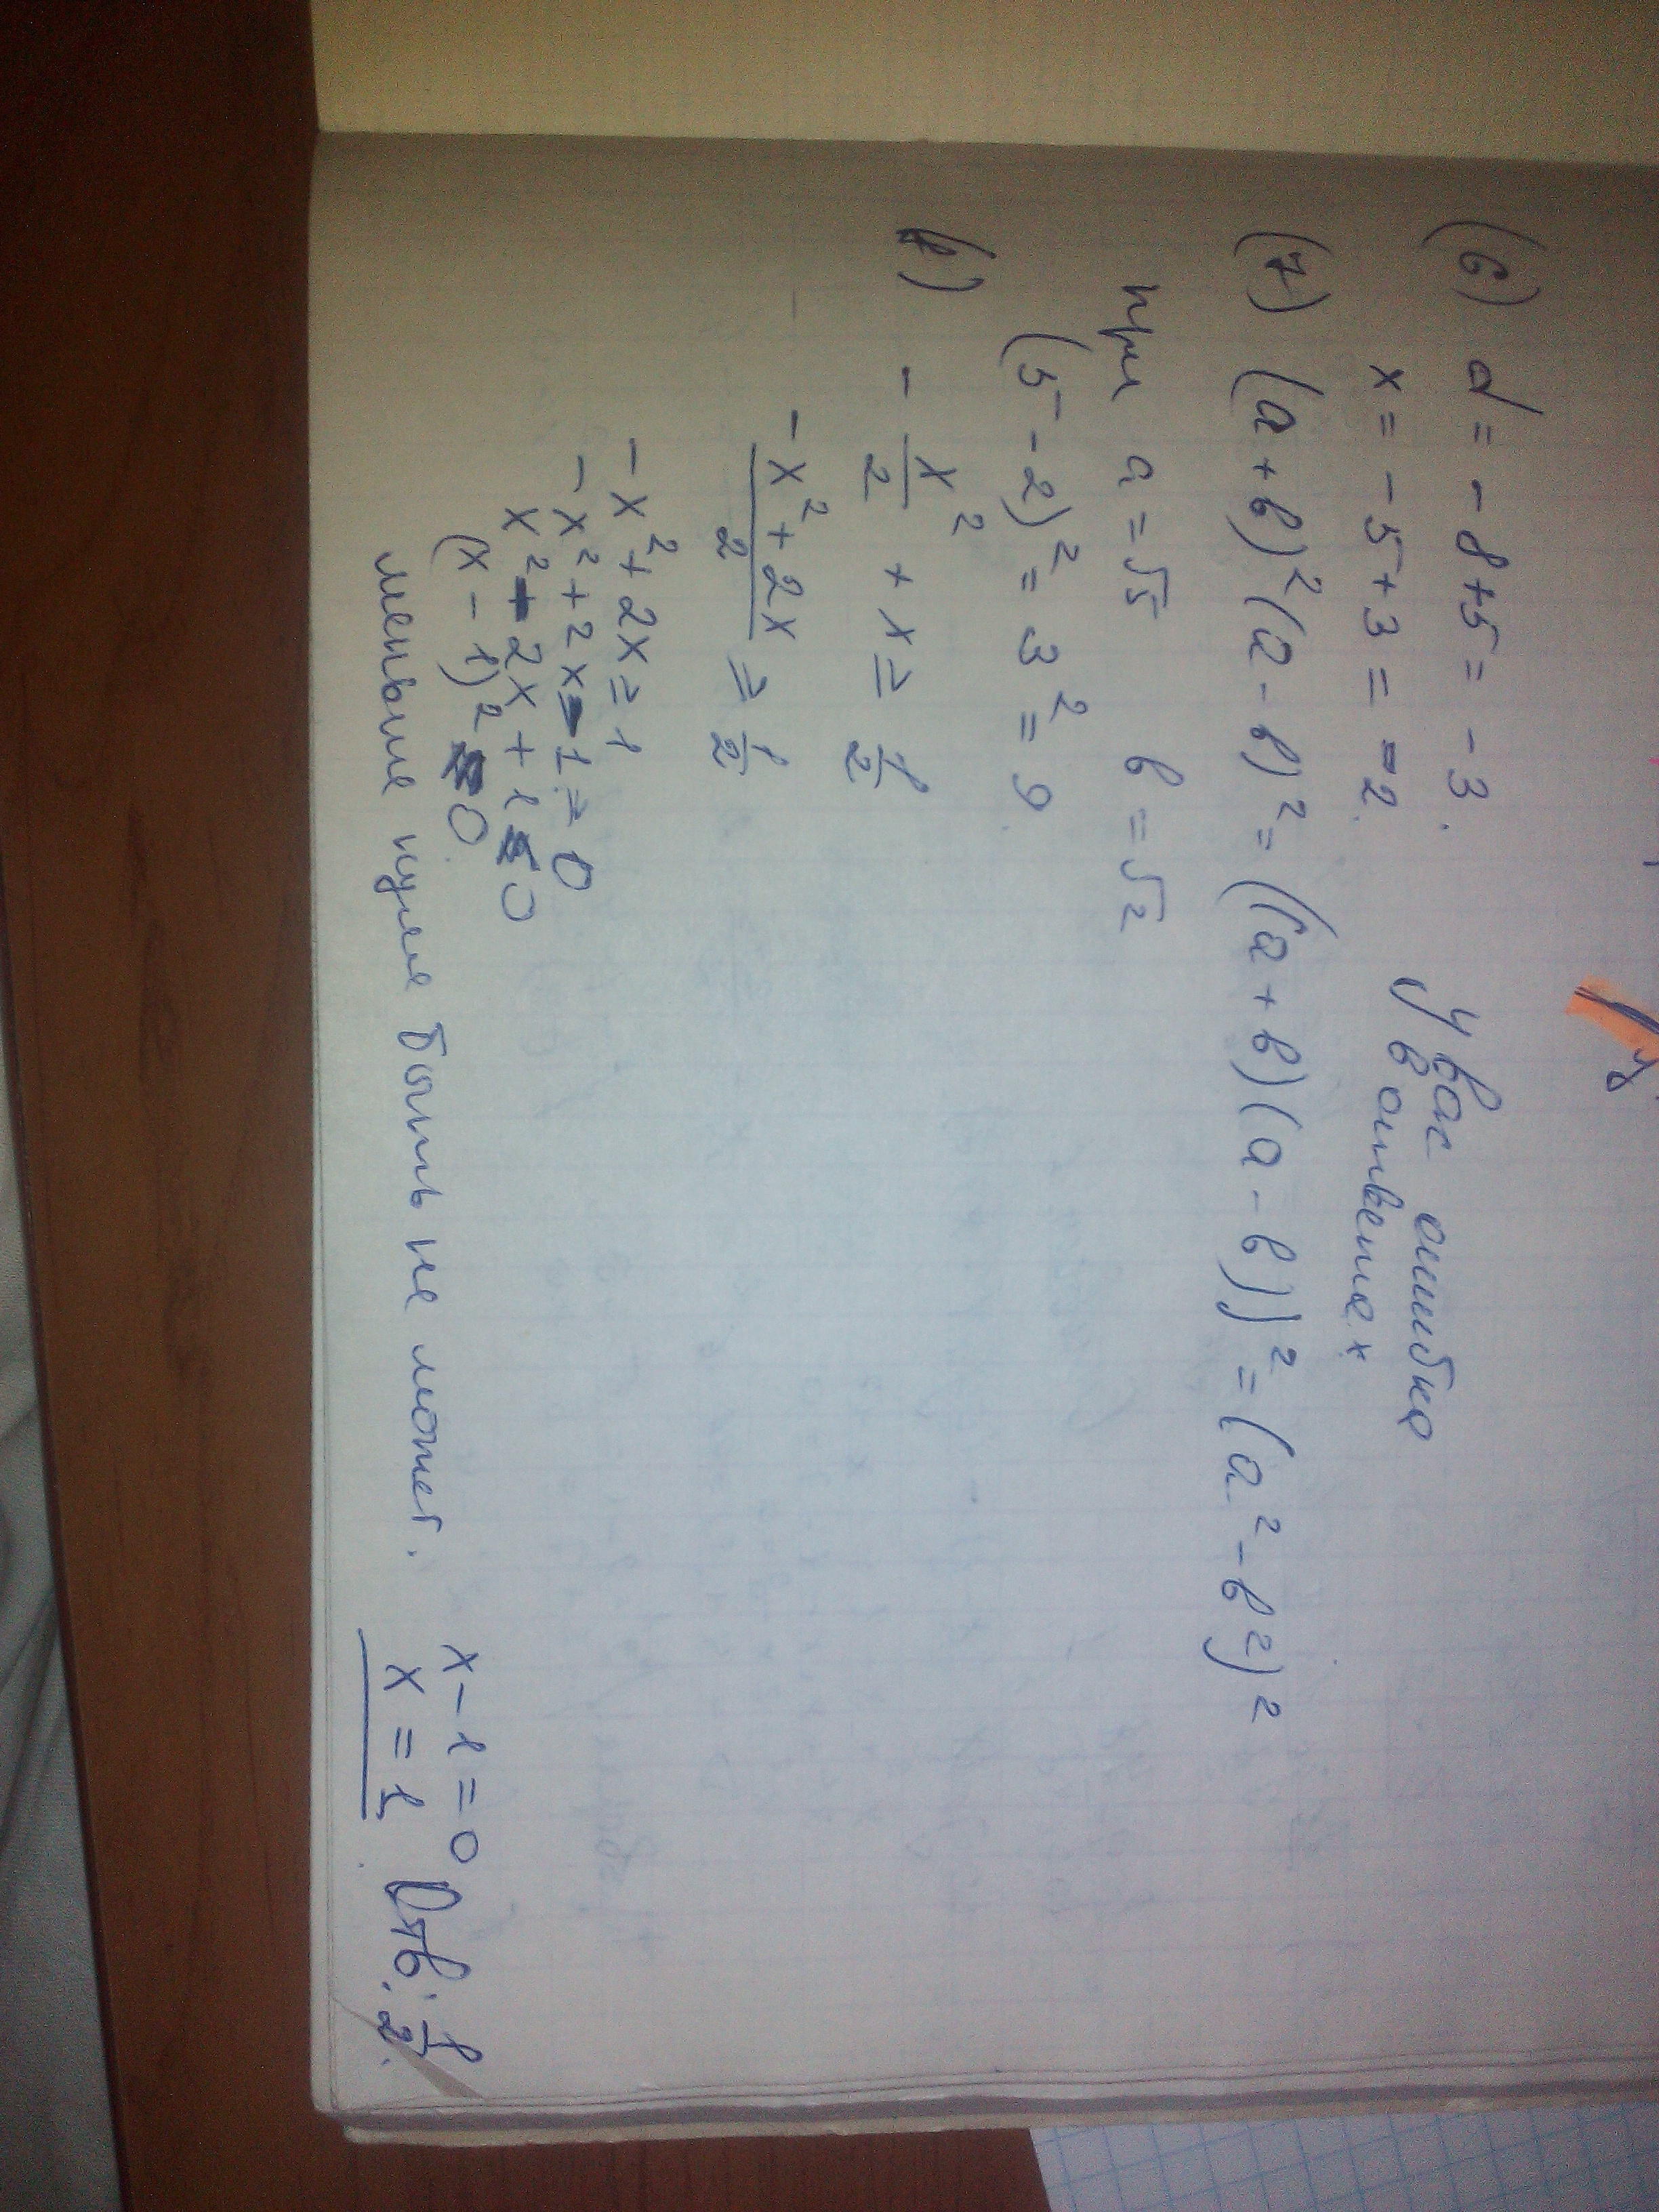 (6) d = -8+5 = -3.
x = -5+3 = -2.
У вас ошибка
в ответе.
(7) (a+b)²(a-b)² = ((a+b)(a-b))² = (a²-b²)²
при a = √5 b = √2
(5-2)² = 3² = 9.
8) - x²/2 + x ≥ 1/2
(-x²+2x)/2 ≥ 1/2
-x²+2x ≥ 1
-x²+2x-1 ≥ 0
x²-2x+1 ≤ 0
(x-1)² ≤ 0.
меньше нуля быть не может.
x-1=0
x=1
Отв: 1/2.